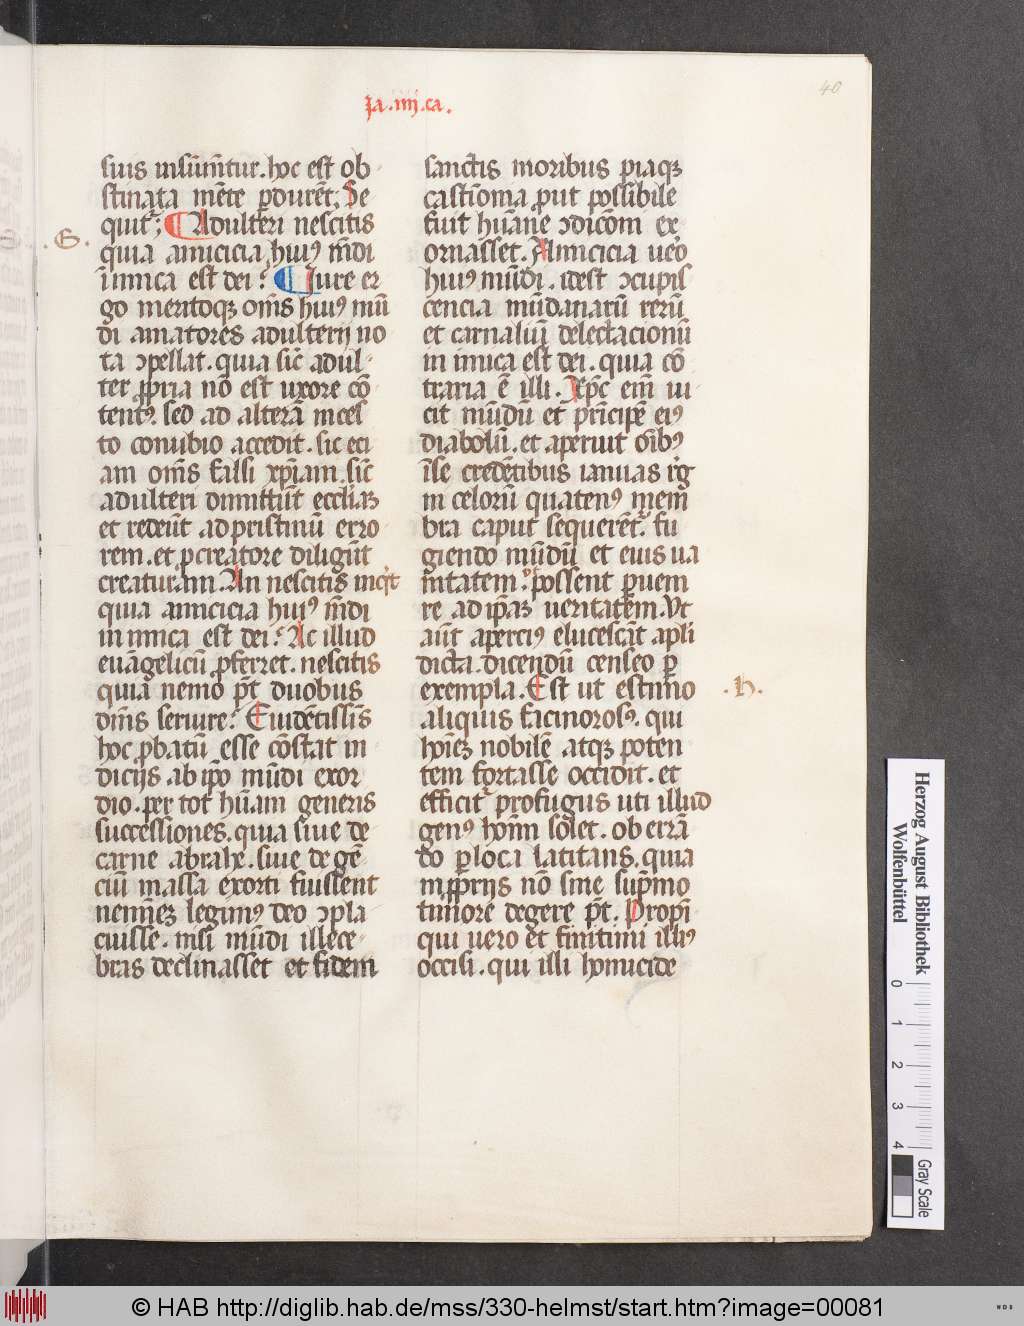 40
Ja . iiij . ca .
suis insūmitur . hoc est ob-
stinata mēte pdurēt ; Se
quit᷑ ; ¶ Adulteri nescitis
. G . quia amicicia hui⁹ mūdi
īimica est dei ? ¶ Jure er
go meritoqꝫ om̄s hui⁹ mū
di amatores adulterij no
ta ↄpellat . quia sic̄ adul-
ter ꝓpria nō est uxore cō
tent⁹ . sed ad alterā incest
to conubio accedit . sic eci
am om̄s falsi xp̄iani . sic̄
adulteri dimittūt ecclīaꝫ
et redeūt ad pristinū erro
rem . et p creatore diligūt
creaturam . An nescitis inq̇t
quia amicicia hui⁹ mūdi
inimica est dei ? Ac illud
euāgelicū ꝓferret . nescitis
quia nemo p̄t duobus
dn̄is seruire ? Euidētissīe
hoc ꝓbatū esse cōstat in
dicijs ab ip̄o mūdi exor
dio . per tot hūani generis
successiones . quia siue de
carne abrahe . siue de gē-
ciū massa exorti fuissent
nemīeꝫ legim⁹ deo ↄpla
cuisse . nisi mūdi illece-
bras declinasset et fidem
sanctis moribus piaqꝫ
castīonia ꝓut possibile
fuit hūane ↄdicōni ex-
ornasset . Amicicia uero
hui⁹ mūdi . idest ↄcupis
cencia mūdanarū rerū
et carnaliū delectacionū
inimica est dei . quia cō
traria ē illi . Xp̄c eni̅ ui
cit mūdū et prīcipē ei⁹
diabolū . et aperuit oīb⁹
ī se credētibus ianuas rig̅
ni celorū quaten⁹ mem̄
bra caput sequerēt᷑ . fu
giendo mūdū et eius ua
nitatem . possent puem
re ad ip̄aꝫ ueritatem . Vt
aūt aperci⁹ elucescāt apl̄i
dicta . dicendū censeo p
exempla . Est ut estimo . h .
aliquis facinoros⁹ . qui
hoīeꝫ nobilē atqꝫ poten
tem fortasse occidit . et
efficit᷑ profugus uti illud
gen⁹ hoīm solet . oberrā
do p loca latitans . quia
in ꝓprijs nō sine sup̄mo
timore degere p̄t . Propī
qui uero et finitimi illi⁹
occisi . qui illi homicide
Herzog August Bibliothek
Wolfenbüttel
0 1 2 3 4
Gray Scale
© HAB http://diglib.hab.de/mss/330-helmst/start.htm?image=00081